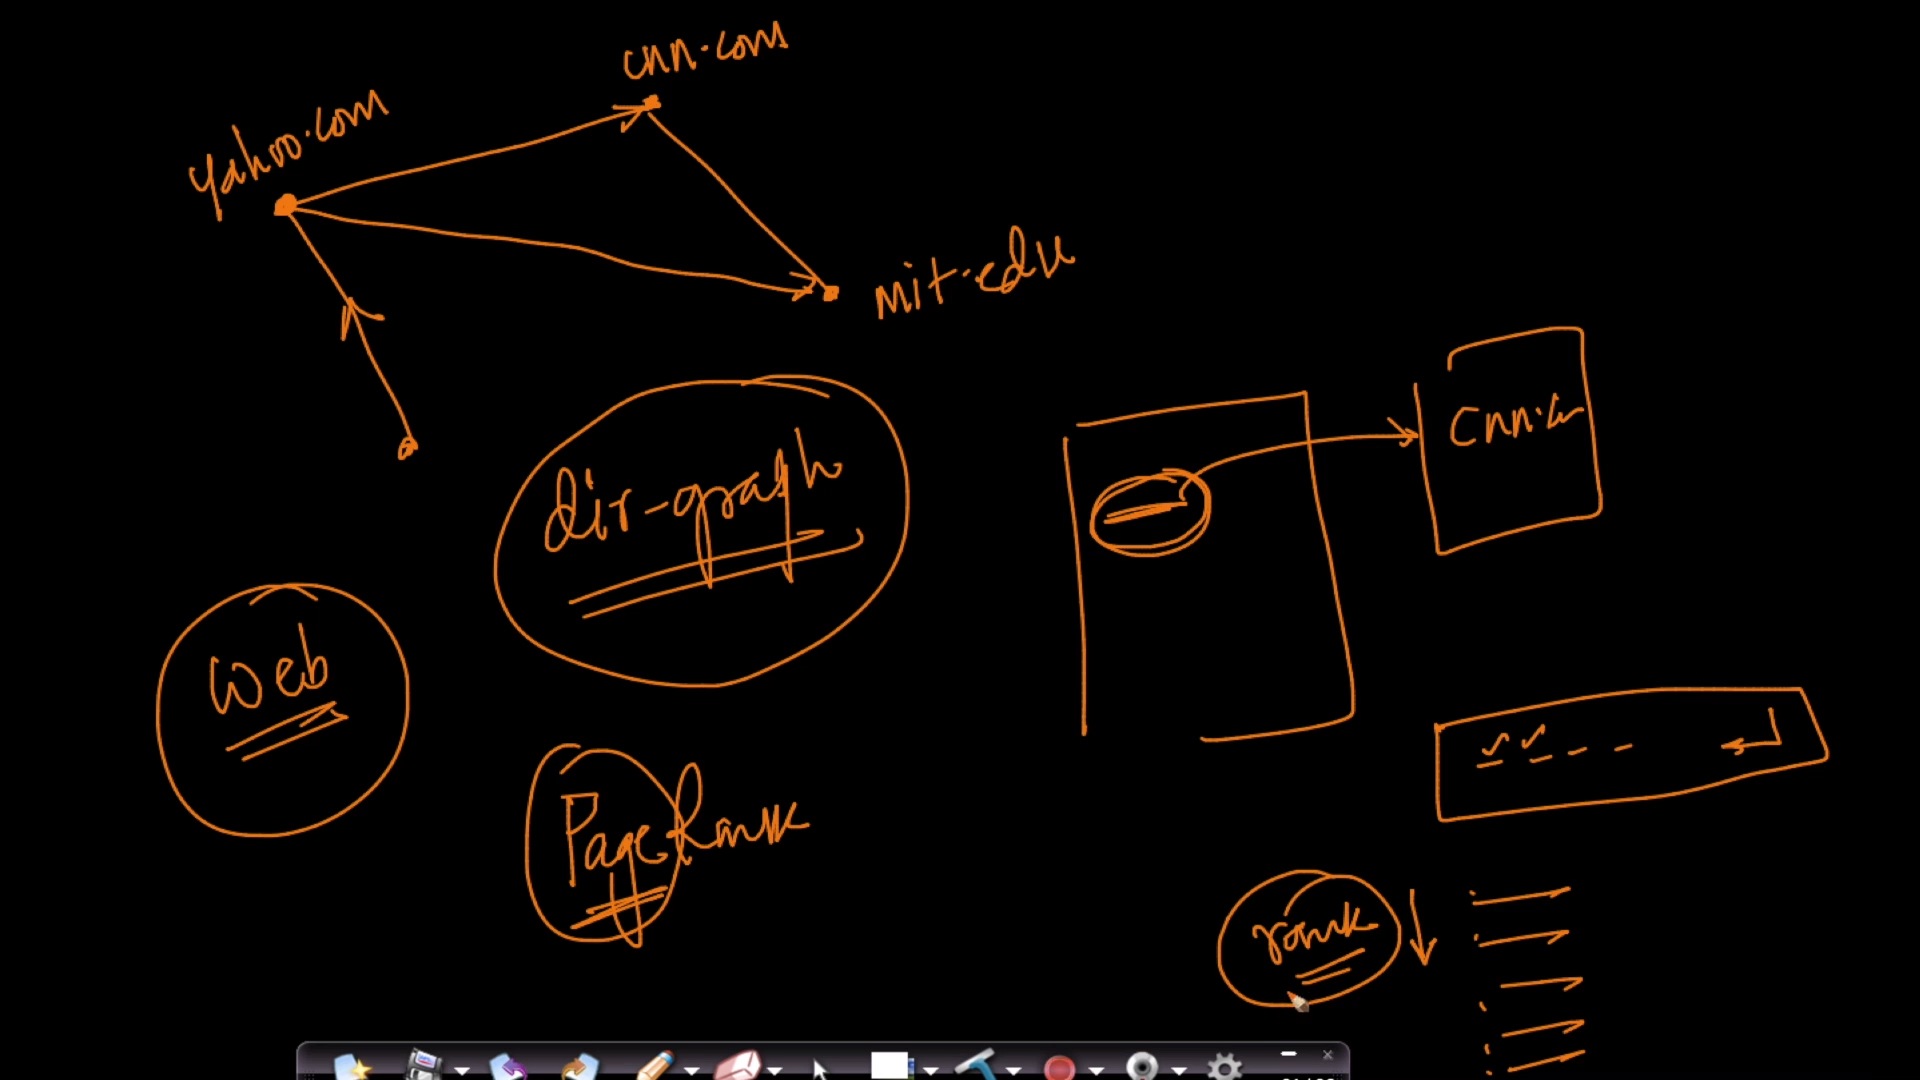 cnn.com
yahoo.com
mit.edu
cnn.
dir-graph
Web
PageRank
rank